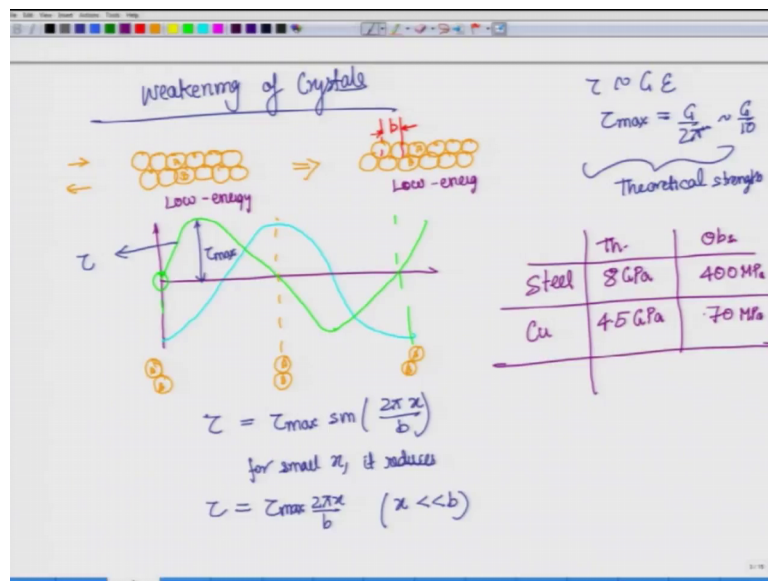 Weakening of Crystals
b
Low-energy
⇒
Low-energ
τ
τmax
τ = τmax sin(2πx/b)
for small x, it reduces
τ = τmax 2πx/b (x << b)
τ ~ G ε
τmax = G/2π ~ G/10
Theoretical strength
Th. Obs
Steel 8 GPa 400 MPa
Cu 45 GPa 70 MPa